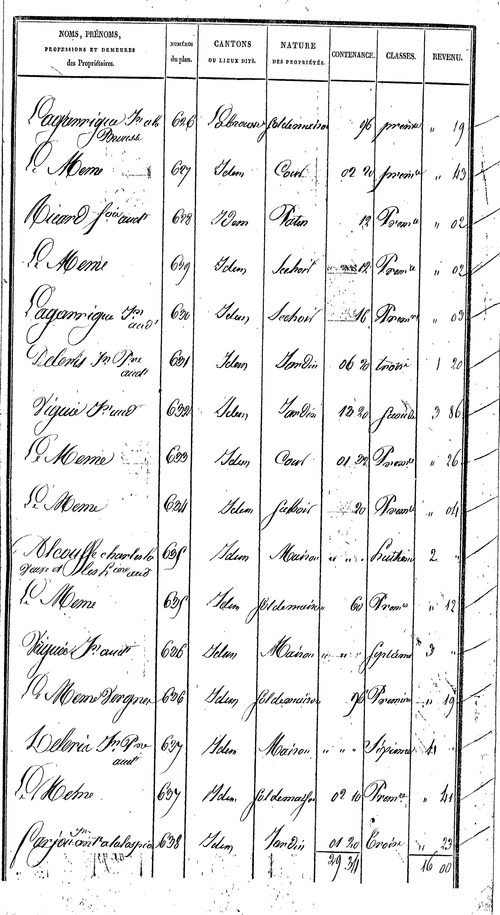 NOMS, PRÉNOMS, PROFESSIONS ET DEMEURES des Propriétaires. NUMÉROS du plan. CANTONS OU LIEUX DITS. NATURE DES PROPRIÉTÉS. CONTENANCE. CLASSES. REVENU.
Lagarrigue Jn 626 sol de maison 96 premre " 19
Le Meme 627 Idem Cour 02 20 premre " 43
Ricard audt 628 Idem Patus 12 Premre " 02
Le Meme 629 Idem Sechoir 12 Premre " 02
Lagarrigue Jn audt 630 Idem Sechoir 16 Premre " 03
Deleris Jn Pre audt 631 Idem Jardin 06 20 troise 1 20
Viguié Jn audt 632 Idem Jardin 13 20 seconde 3 86
Le Meme 633 Idem Cour 01 32 Premre " 26
Le Meme 634 Idem 20 Premre " 04
Alcouffe charles la veuve et les hers audt 635 Idem Maison " " " huitieme 2 "
Le Meme 635 Idem sol de maison " 60 Premre " 12
Viguié Jn audt 636 Idem Maison " " " septieme 3 "
Le Meme Vergnes 636 Idem sol de maison 96 Premiere " 19
Deleris Jn Pre audt 637 Idem Maison " " " Sixieme 4 "
Le Meme 637 Idem sol de maison 02 10 Premre " 41
638 Idem Jardin 01 20 Troise " 23
29 34 16 00